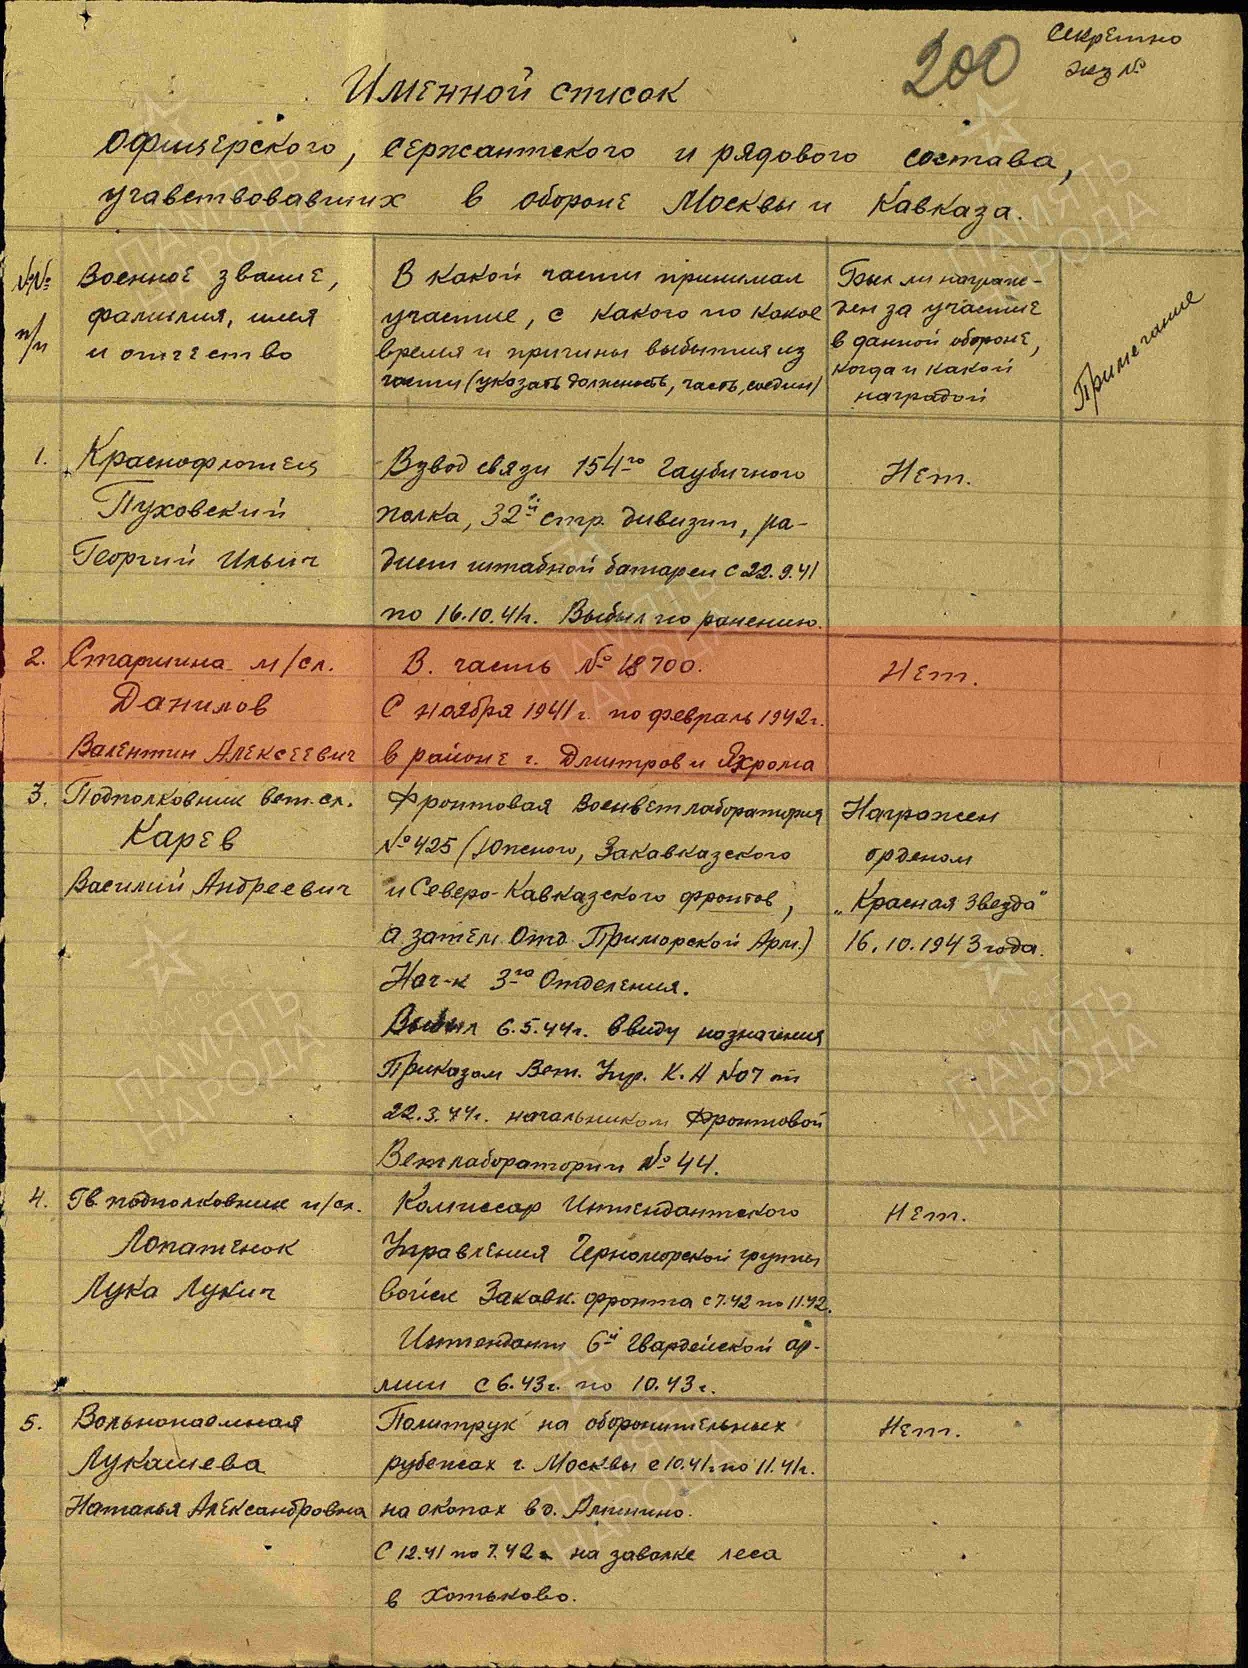 Секретно
экз №
200
Именной список
офицерского, сержантского и рядового состава,
учавствовавших в обороне Москвы и Кавказа.
№№
п/п
Военное звание,
фамилия, имя
и отчество
В какой части принимал
участие, с какого по какое
время и причины выбытия из
части (указать должность, часть, соедин)
Был ли награж-
ден за участие
в данной обороне,
когда и какой
наградой
Примечание
1.
Краснофлотец
Пуховский
Георгий Ильич
Взвод связи 154го Гаубичного
полка, 32й стр. дивизии, ра-
дист штабной батареи с 22.9.41
по 16.10.41г. Выбыл по ранению.
Нет.
2.
Старшина м/сл.
Данилов
Валентин Алексеевич
В. часть № 18700.
С ноября 1941г. по февраль 1942г.
в районе г. Дмитров и Яхрома
Нет.
3.
Подполковник вет.сл.
Карев
Василий Андреевич
Фронтовая Военветлаборатория
№ 425 (Южного, Закавказского
и Северо-Кавказского фронтов,
а затем Отд. Приморской Арм.)
Нач-к 3го Отделения.
Выбыл 6.5.44г. ввиду назначения
Приказом Вет. Упр. К.А №07 от
22.3.44г. начальником Фронтовой
Ветлаборатории № 44.
Награжен
орденом
„Красная Звезда"
16.10.1943 года.
4.
Гв. подполковник и/сл.
Лопатенок
Лука Лукич
Комиссар Интендантского
Управления Черноморской группы
войск Закавк. фронта с 7.42 по 11.42.
Интендант 6й Гвардейской ар-
мии с 6.43г. по 10.43г.
Нет.
5.
Вольнонаемная
Лукашева
Наталья Александровна
Политрук на оборонительных
рубежах г. Москвы с 10.41г. по 11.41г.
на окопах в д. Алтино.
С 12.41 по 7.42г. на завалке леса
в Хотьково.
Нет.
ПАМЯТЬ
НАРОДА